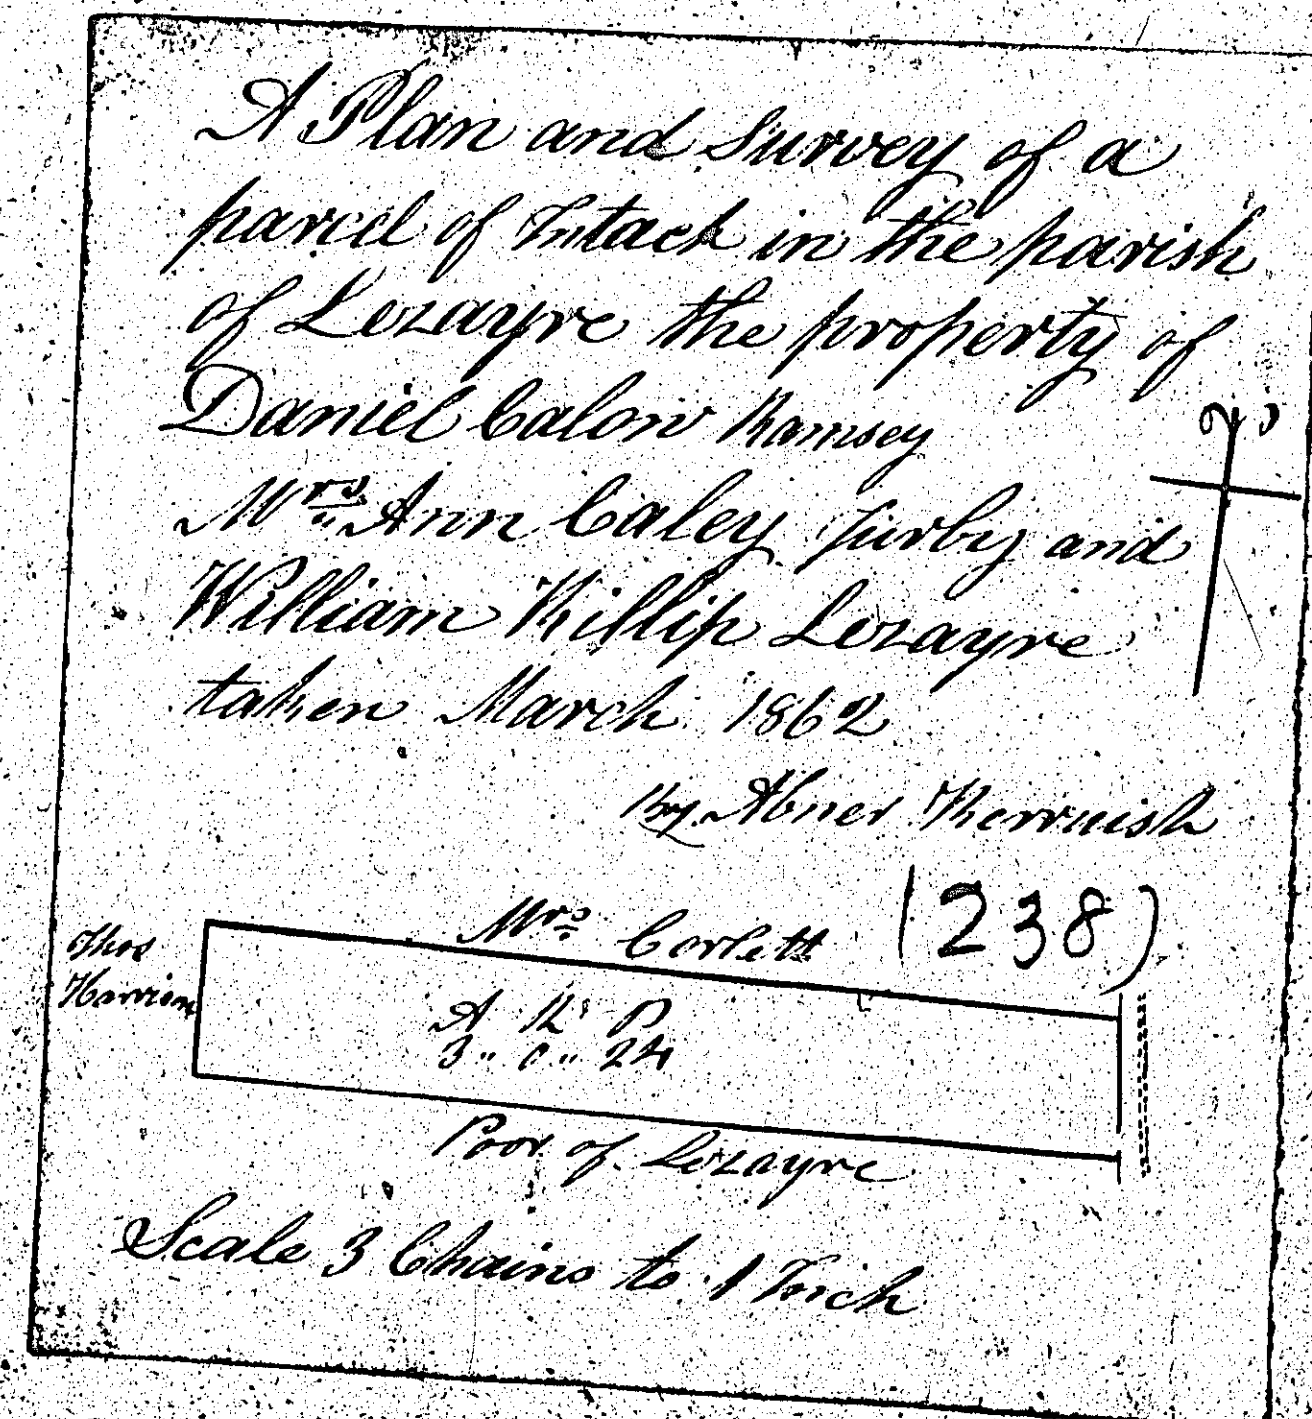 A Plan and Survey of a
parcel of Intack in the parish
of Lezayre the property of
Daniel Calow Ramsey
Mrs Ann Caley Jurby and
William Killip Lezayre
taken March 1862
By Abner Kerruish
(238)
Mrs Corlett
Thos
Harrison
A R P
3 " 0 " 24
Poor of Lezayre
Scale 3 Chains to 1 Inch